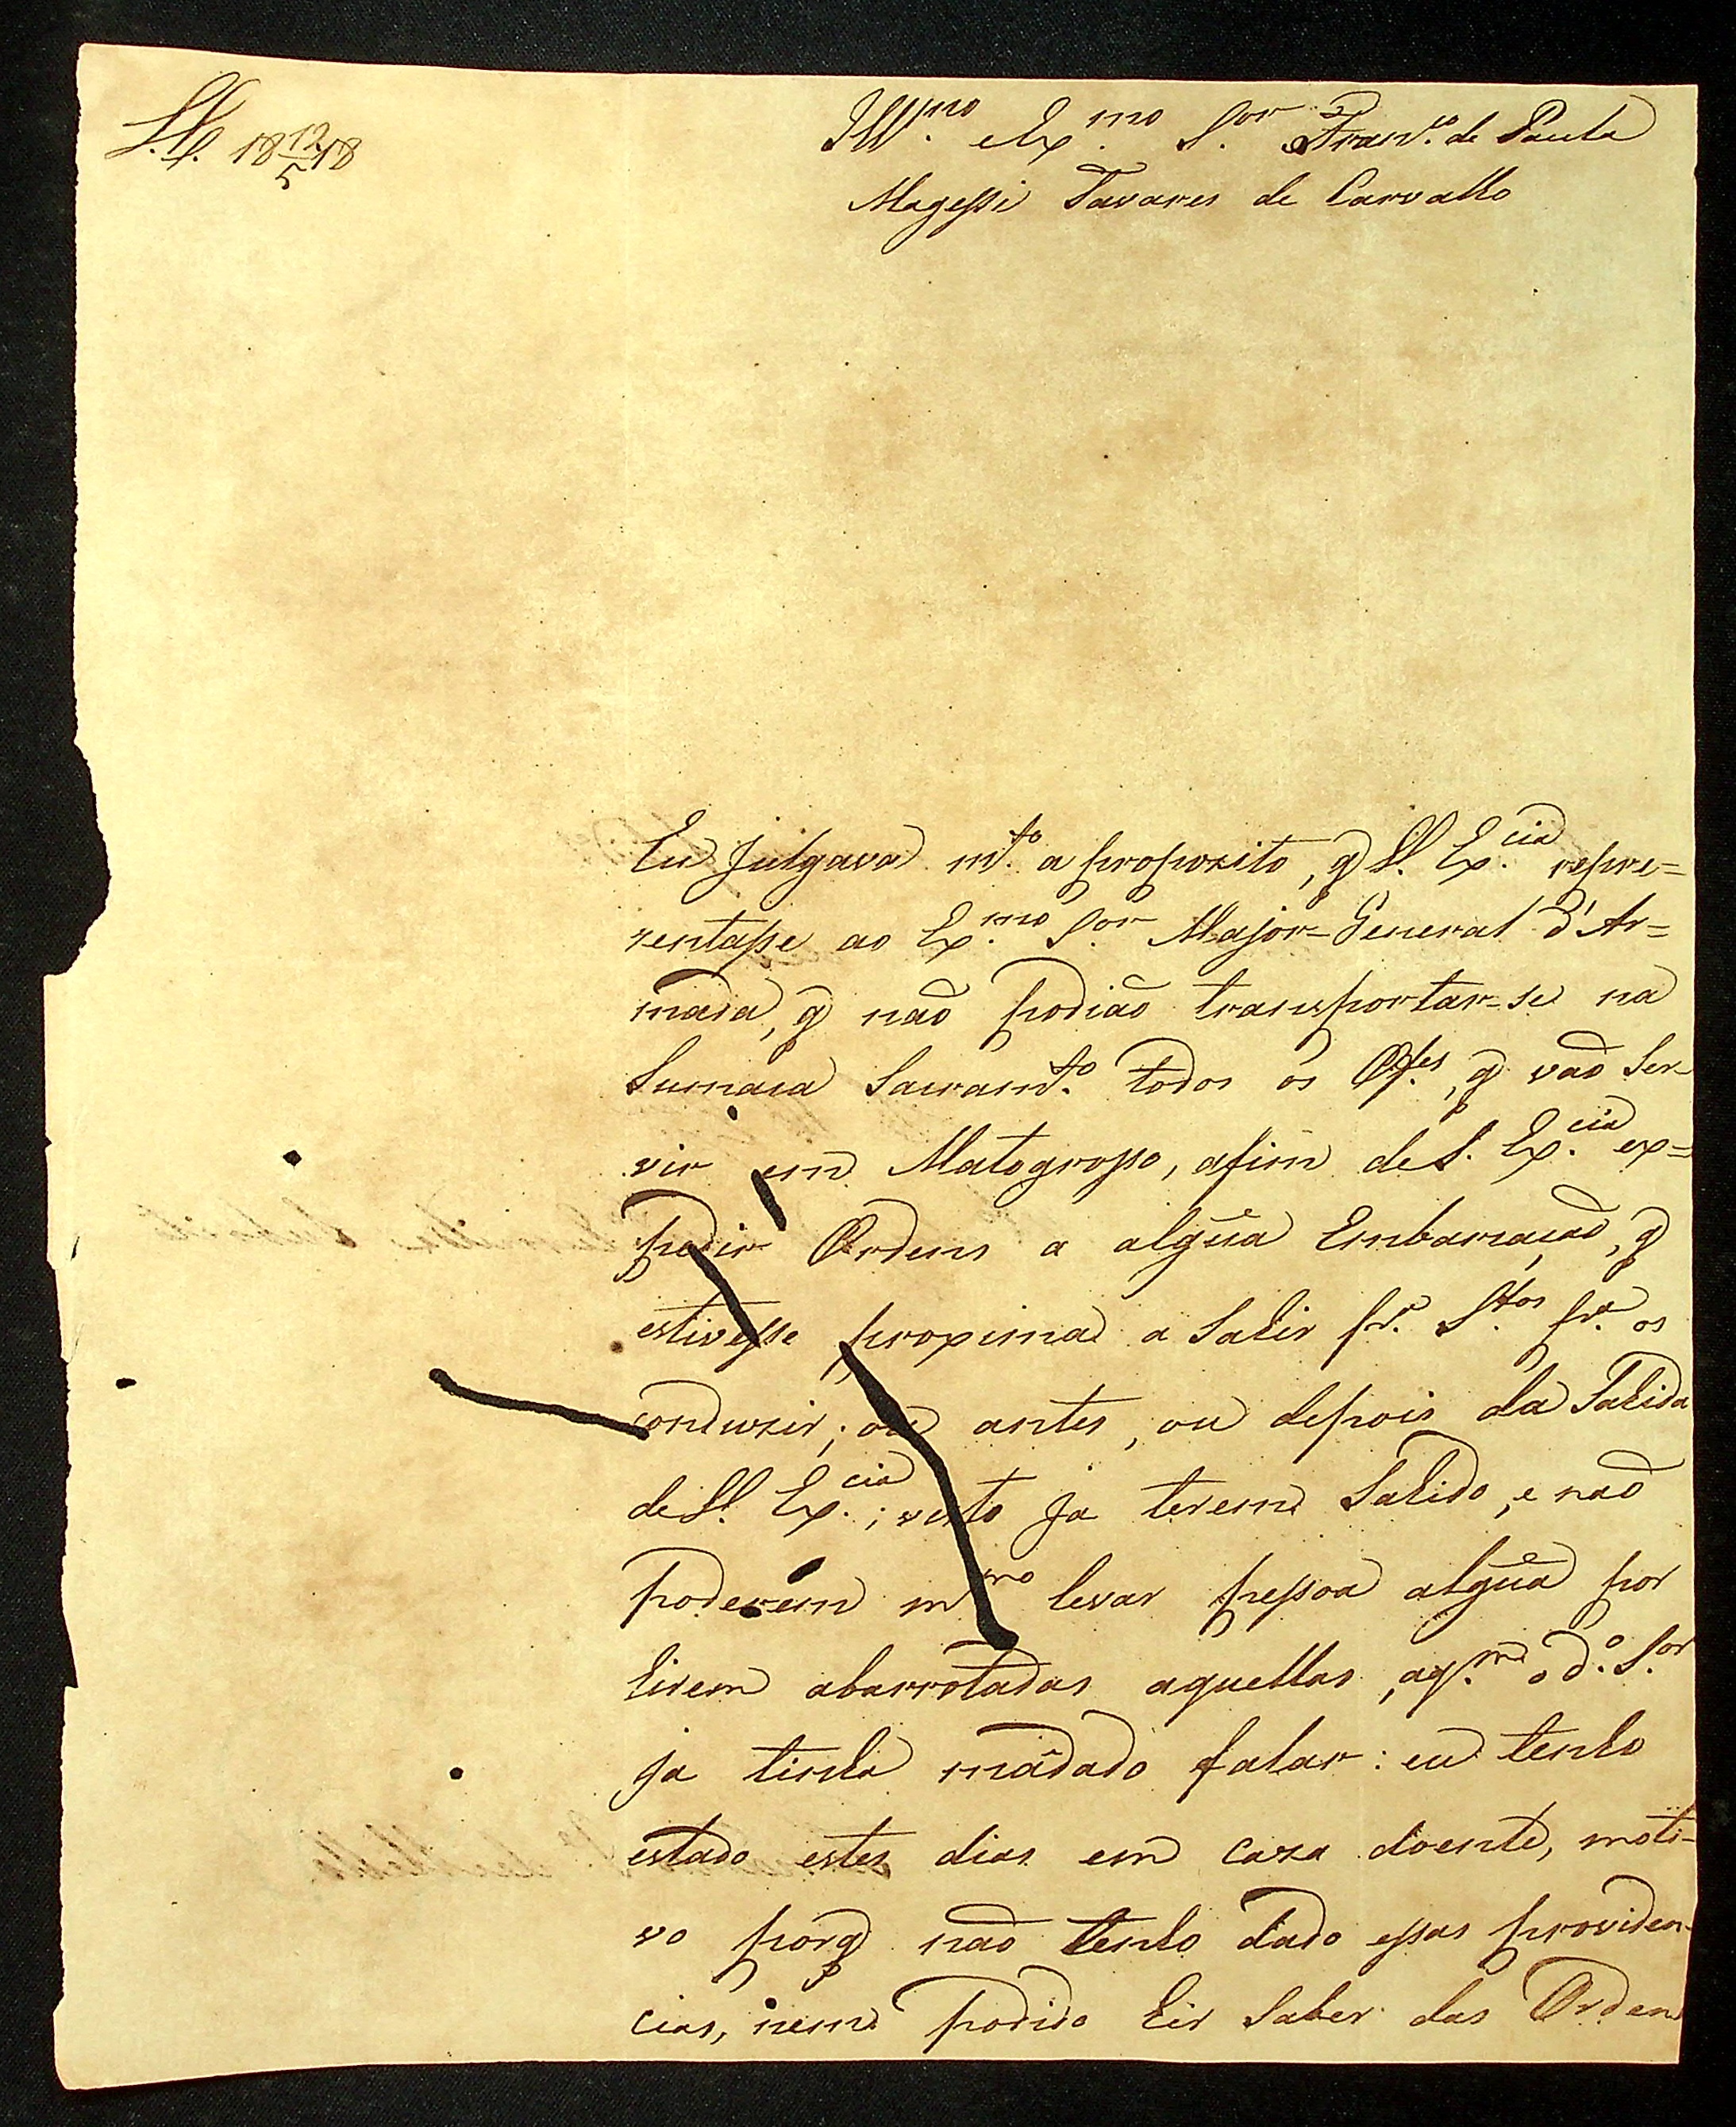 18 12/5 18
Ill.mo e Ex.mo S.or Fran.co de Paula
Magessi Tavares de Carvalho
Eu julgava m.to a proposito, q V. Ex.cia repre=
zentasse ao Ex.mo S.or Major-General d'Ar=
mada, q não podião transportar-se na
Sumaca Sacram.to todos os Of.es, q vão Ser-
vir em Matogrosso, afim de S. Ex.cia ex=
pedir Ordens a algũa Embarcação, q
estivesse proxima a Sahir p.a S.tos p.a os
conduzir; ou antes, ou depois da Sahida
de V. Ex.cia; visto ja terem Sahido, e não
poderem m.mo levar pessoa algũa por
hirem abarrotadas aquellas, aq.m o d.o S.or
ja tinha mãdado falar: eu tenho
estado estes dias em caza doente, moti-
vo porq não tenho dado essas providen-
cias, nem podido hir Saber das Ordens